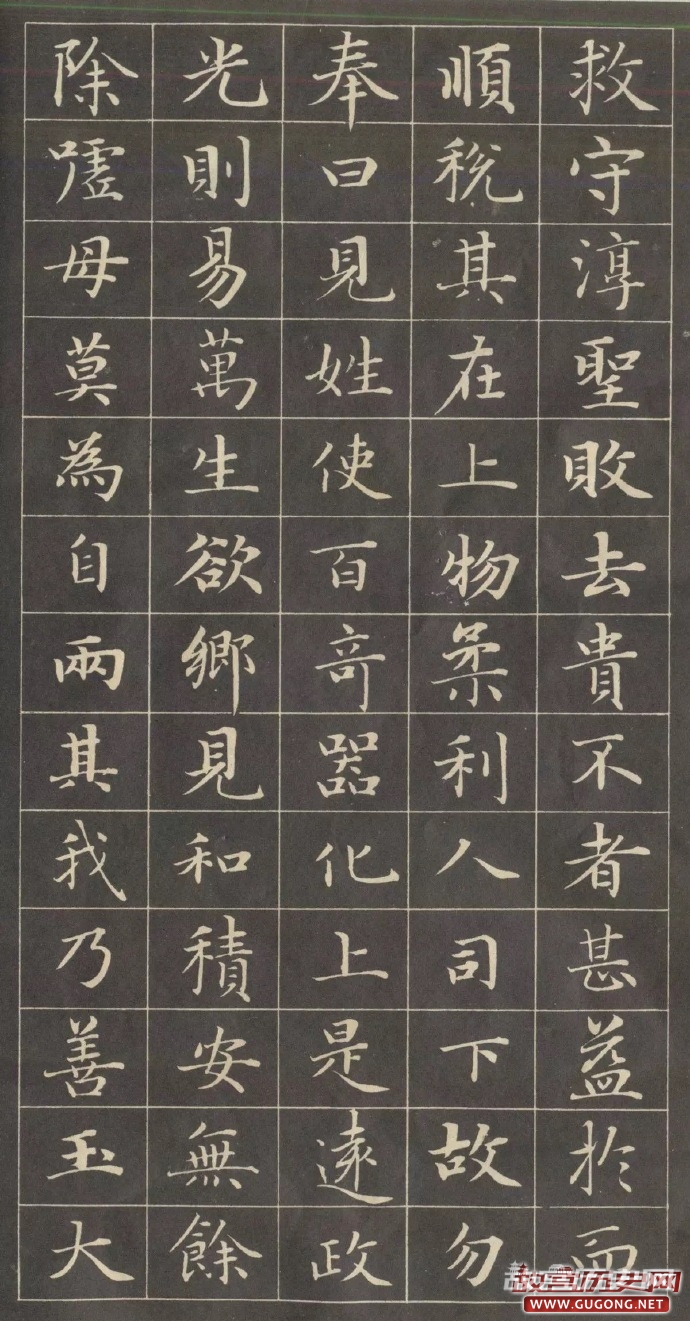 救守淳聖敗去貴不者甚益於而
順稅其在上物柔利人司下故勿
奉曰見姓使百竒器化上是遠政
光則易萬生欲鄉見和積安無餘
除嘘母莫為自兩其我乃善玉大
故宫历史网
WWW.GUGONG.NET